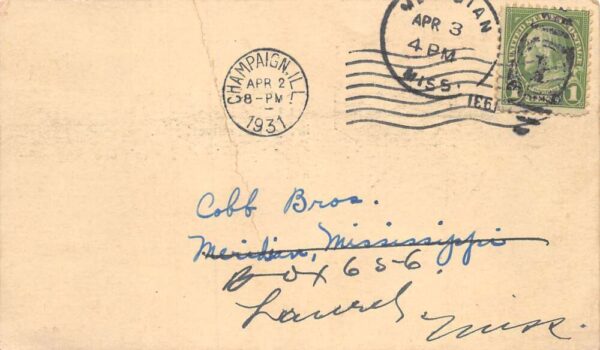 CHAMPAIGN, ILL.
APR 2
8-PM
1931
MERIDIAN
APR 3
4 PM
MISS.
1931
UNITED STATES POSTAGE
1
Cobb Bros.
Meridian, Mississippi
Box 656.
Laurel,
Miss.